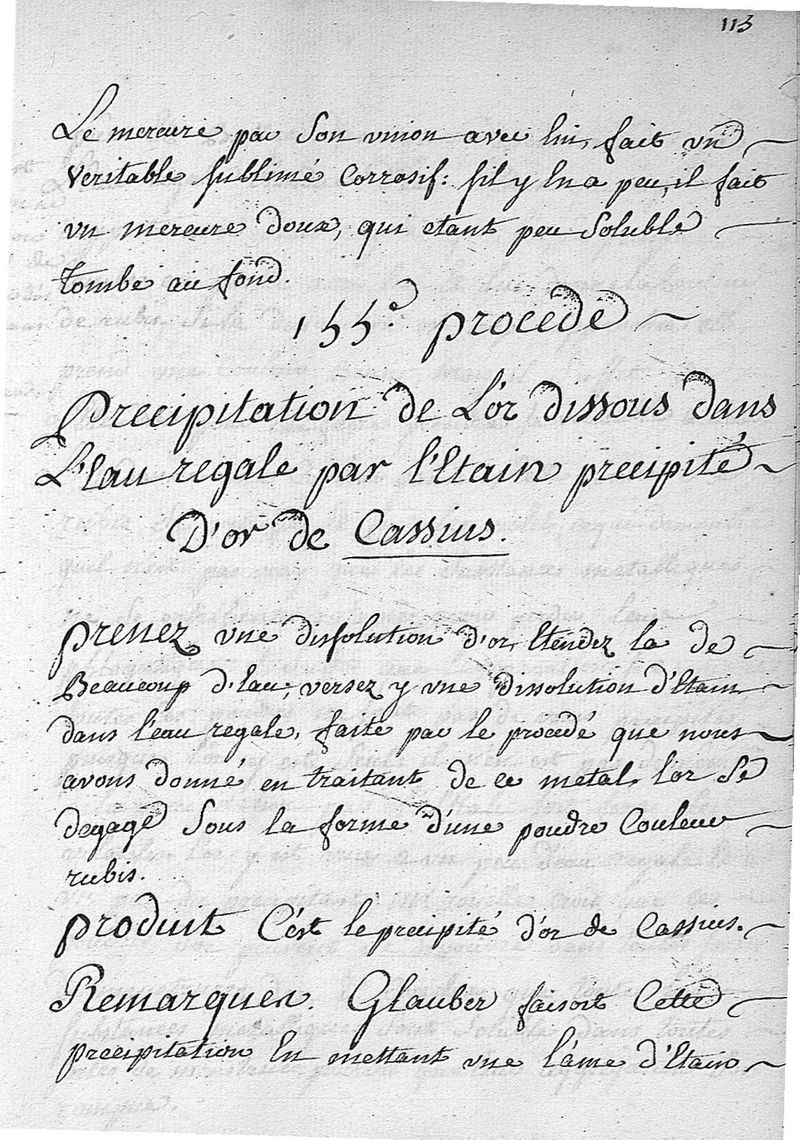 113
Le mercure par Son union avec lui, fait un
Veritable sublimé Corrosif: s'il y En a peu, il fait
un mercure doux, qui etant peu Soluble
Tombe au fond
155e procedé
Precipitation de L'or dissous dans
L'Eau regale par l'Etain precipité
D'or de Cassius.
prenez une dissolution d'or, Etendez la de
Beaucoup d'Eau, versez y une dissolution d'Etain
dans l'eau regale, faite par le procedé que nous
avons donné en traitant de ce metal, l'or Se
degage Sous la forme d'une poudre Couleur
rubis.
produit C'est le precipité d'or de Cassius.
Remarques. Glauber faisoit Cette
precipitation En mettant une lame d'Etain